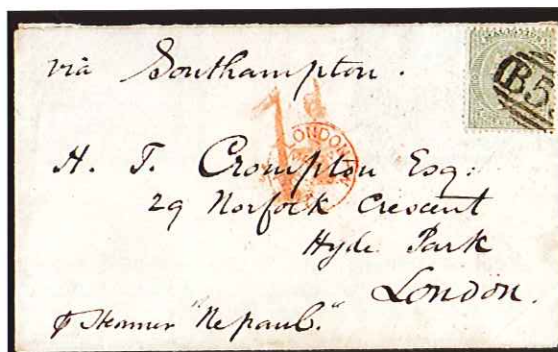 via Southampton.
B5
1d
LONDON
H. T. Crompton Esq:
29 Norfolk Crescent
Hyde Park
London.
Steamer "Nepaul."